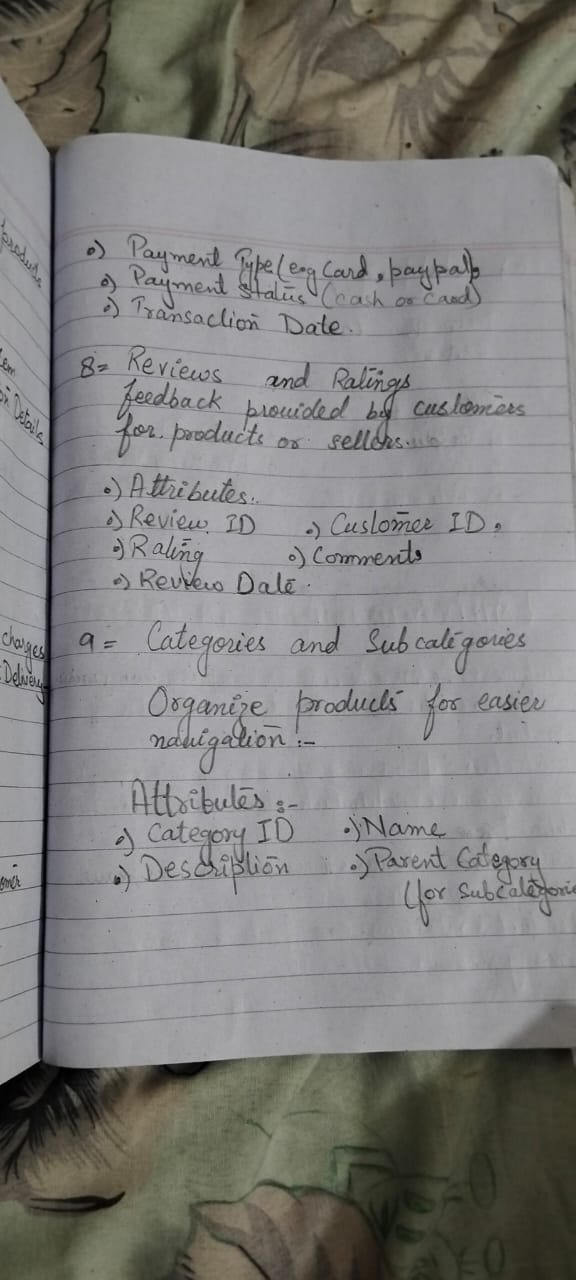 products
o) Payment Type (e.g Card, paypal)
o) Payment Status (cash or Card)
o) Transaction Date.
8= Reviews and Ratings
feedback provided by customers
for products or sellers.
o) Attributes.
o) Review ID o) Customer ID.
o) Rating o) Comments
o) Review Date.
9= Categories and Subcategories
Organize products for easier
navigation :-
Attributes :-
o) Category ID o) Name
o) Description o) Parent Category
(for Subcategorie
Details
charges
Delivery